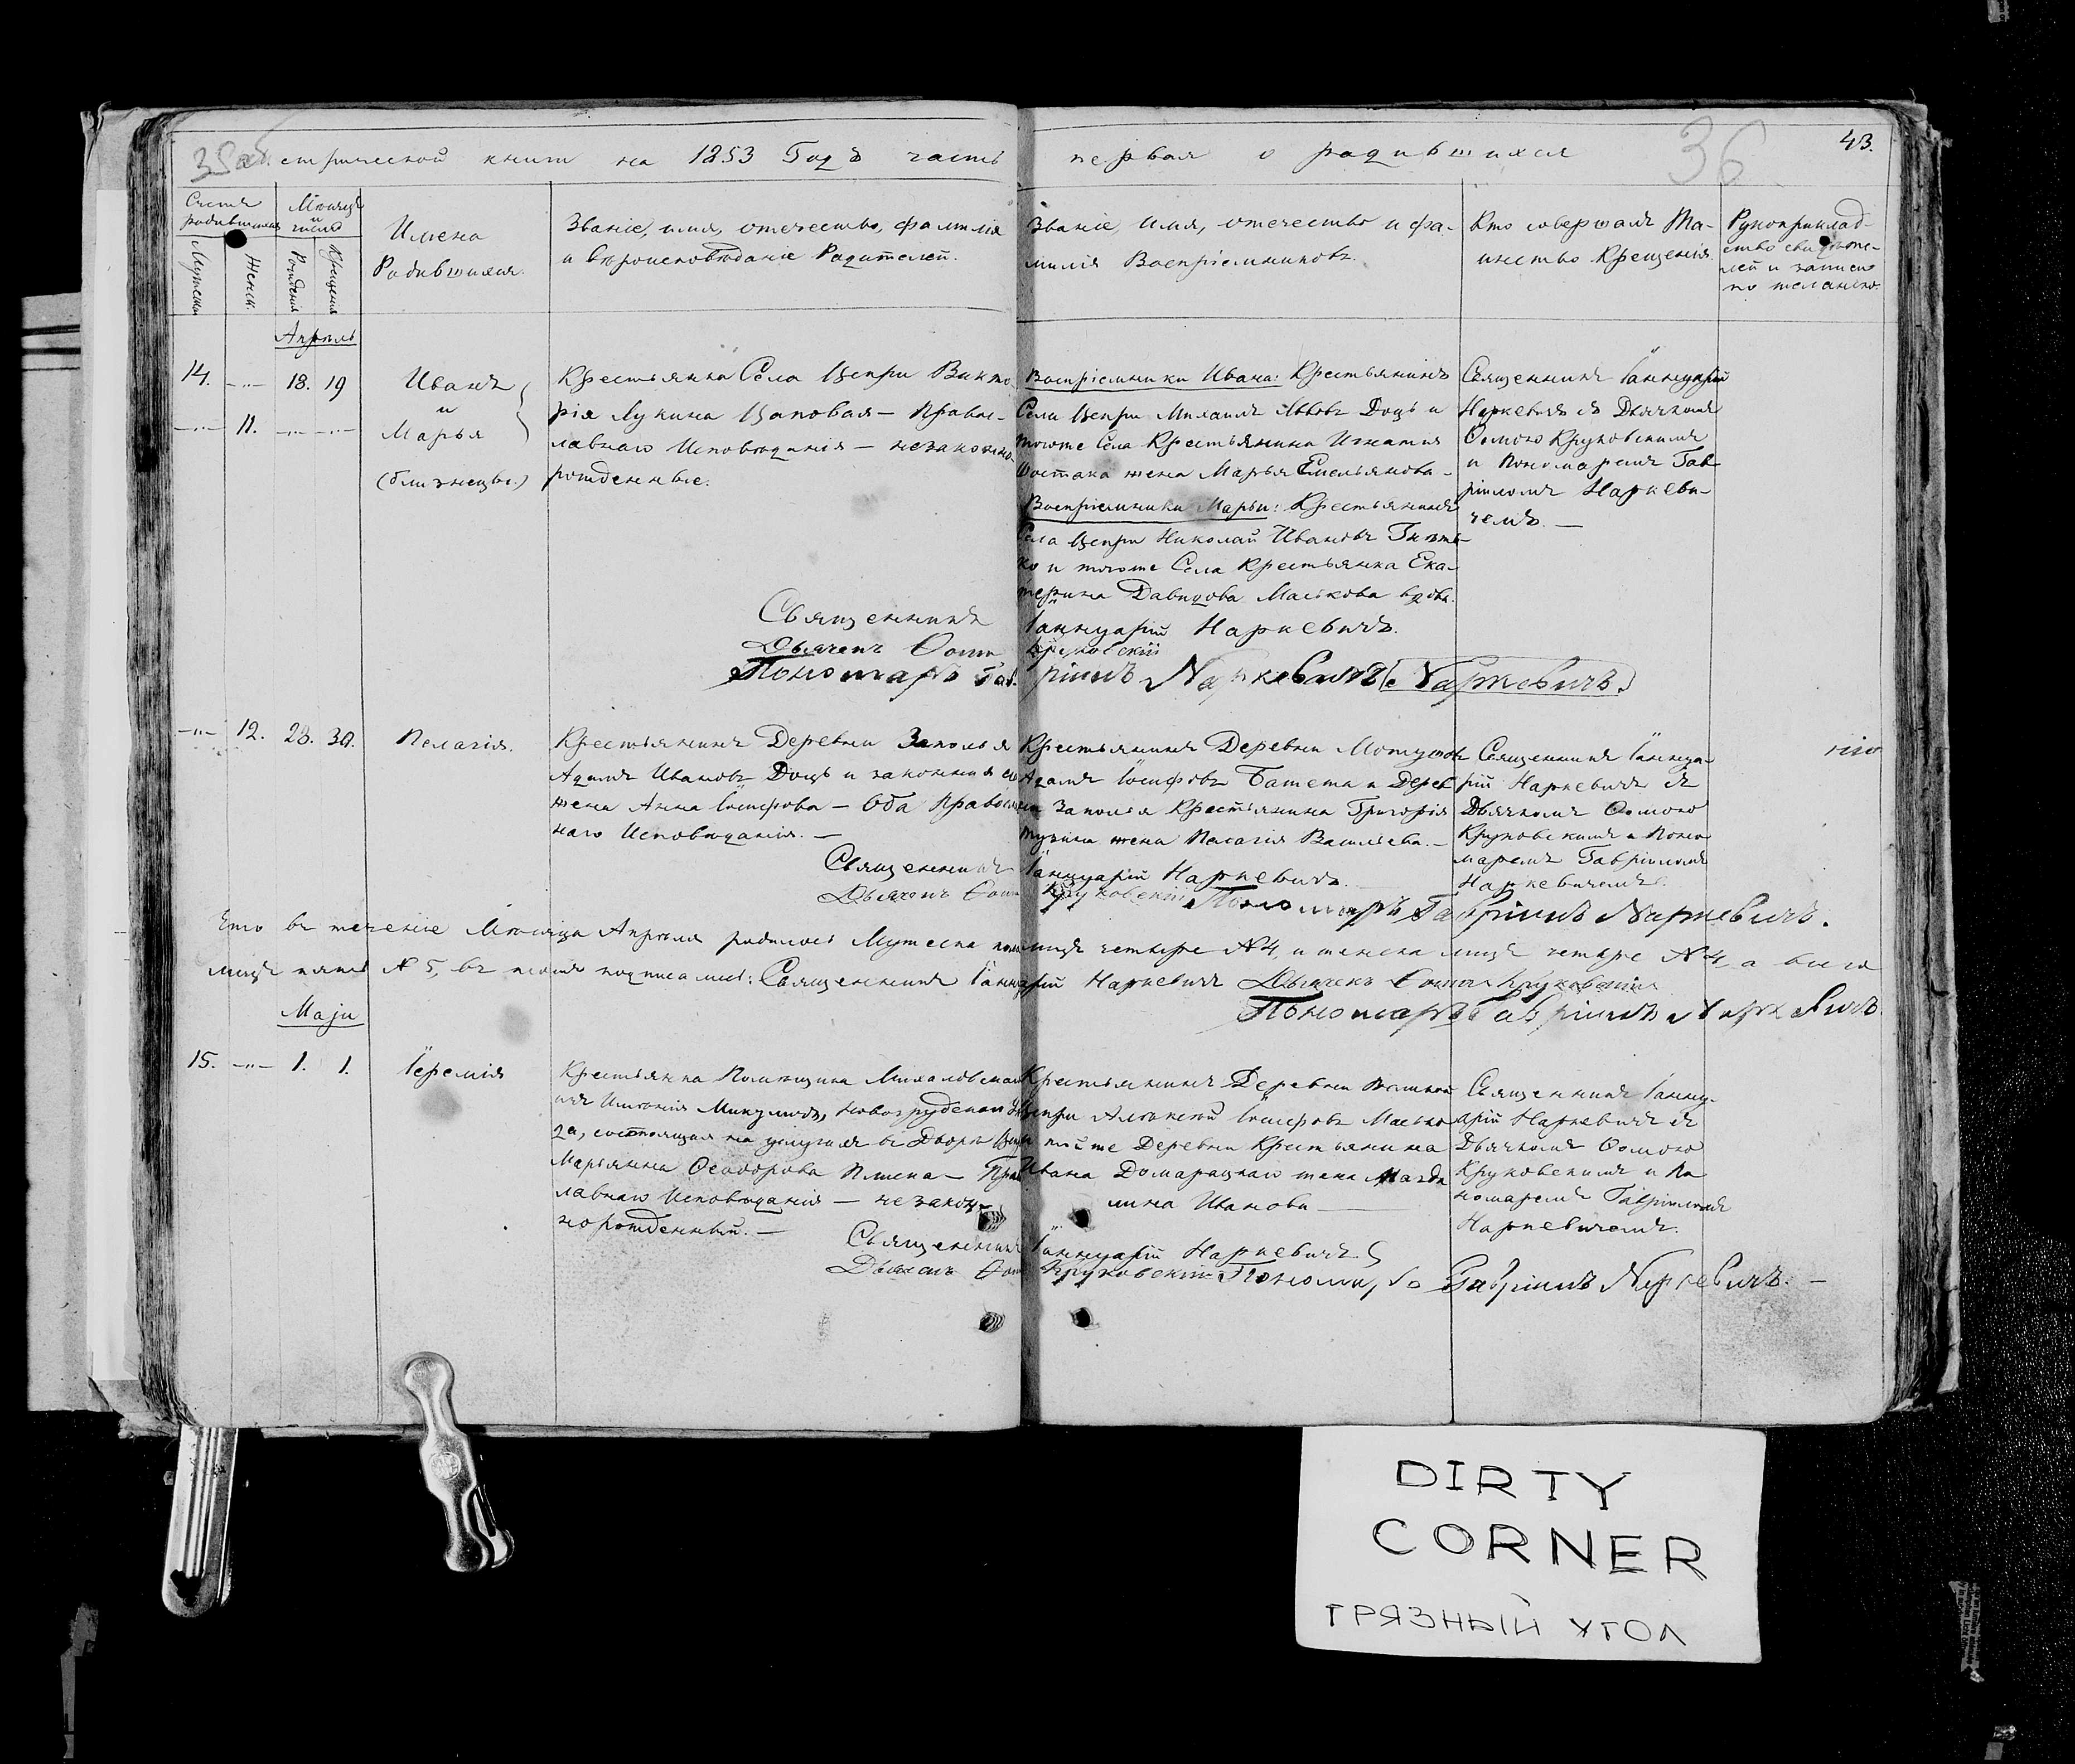 метрической книги на 1853 Годъ часть первая о родившихся
36
43.
Счетъ родившихся
Мужеска
Женск.
Мѣсяцъ и число
Рожденія
Крещенія
Имена
Родившихся.
Званіе, имя, отечество, фамилія
и вѣроисповѣданіе Родителей.
Званіе, имя, отечество и фа-
милія Воспріемниковъ.
Кто совершалъ Та-
инство Крещенія.
Рукоприклад-
ство свидѣте-
лей и записи
по желанію.
Апрѣль
14. -"- 18. 19
-"- 11. -"- -"-
Иванъ
и
Марья
(близнецы.)
Крестьянка Села Цепры Викто-
рія Лукина Цаповая – Правос-
лавнаго Исповѣданія – незаконно-
рожденные.
Воспріемники Ивана: Крестьянинъ
Села Цепры Михаилъ Львовъ Доцъ и
тогоже Села Крестьянина Игнатія
Шостака жена Марья Емельянова –
Воспріемники Марьи: Крестьянинъ
Села Цепры Николай Ивановъ
и тогоже Села Крестьянка Ека-
терина Давидова Маськова вдова.
Священникъ Іаннуарій
Наркевичъ съ Дьячкомъ
Ѳомою Круковскимъ
и Пономаремъ Гав-
ріиломъ Наркеви-
чемъ. –
Священникъ Іаннуарій Наркевичъ.
Дьячекъ Ѳома Круковскій
Пономарь Гавріилъ Наркевичъ (Наркевичъ.)
-"- 12. 28. 30.
Пелагія.
Крестьянинъ Деревни Заполья
Адамъ Ивановъ Доцъ и законная его
жена Анна Іосифова – Оба Православ-
наго Исповѣданія. –
Крестьянинъ Деревни
Адамъ Іосифовъ и Дерев-
ни Заполья Крестьянина Григорія
жена Пелагія Васильева. –
Священникъ Іаннуа-
рій Наркевичъ съ
Дьячкомъ Ѳомою
Круковскимъ и Поно-
маремъ Гавріиломъ
Наркевичемъ.
Священникъ Іаннуарій Наркевичъ.
Дьячекъ Ѳома Круковскій Пономарь Гавріилъ Наркевичъ.
въ теченіе Мѣсяца Апрѣля родилось Мужеска пола лицъ четыре № 4, и женска лицъ четыре № 4, а всего
лицъ № 5, въ подписались: Священникъ Іаннуарій Наркевичъ Дьячекъ Ѳома Круковскій
Пономарь Гавріилъ Наркевичъ.
Маій
15. -"- 1. 1.
Іеремія
Крестьянка Помѣщика
имѣнія Микуличъ, Новогрудскаго Уѣ-
зда, состоящая на услугахъ въ Дворѣ Цепра
Марьянна Ѳеодорова – Правос-
лавнаго Исповѣданія – незакон-
норожденный. –
Крестьянинъ Деревни Великой
Цепры Алексѣй Іосифовъ Масько
и тойже Деревни Крестьянина
Ивана Домарацкаго жена Магда-
лина Иванова –
Священникъ Іанну-
арій Наркевичъ съ
Дьячкомъ Ѳомою
Круковскимъ и По-
номаремъ Гавріиломъ
Наркевичемъ.
Священникъ Іаннуарій Наркевичъ
Дьячекъ Ѳома Круковскій Пономарь Гавріилъ Наркевичъ. –
DIRTY
CORNER
ГРЯЗНЫЙ УГОЛ